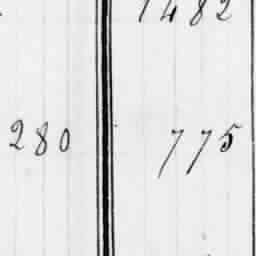 1482
280 775